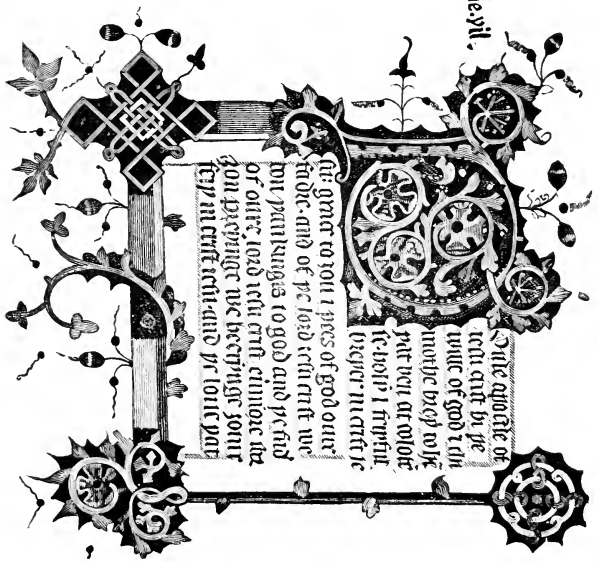 oule apostle of
iesu crist bi þe
wille of god
mothe broþ to hē
þat ben at colose
se holy ⁊ feiþful
breþer in crist ie
su: grace to you ⁊ pees of god oure
fadir· and of þe lord iesu crist we
don þankyngis to god and þe fad
of oure lord iesu crist euermore
you preynge we heerynge youre
feiþ in crist iesu· and þe loue þat